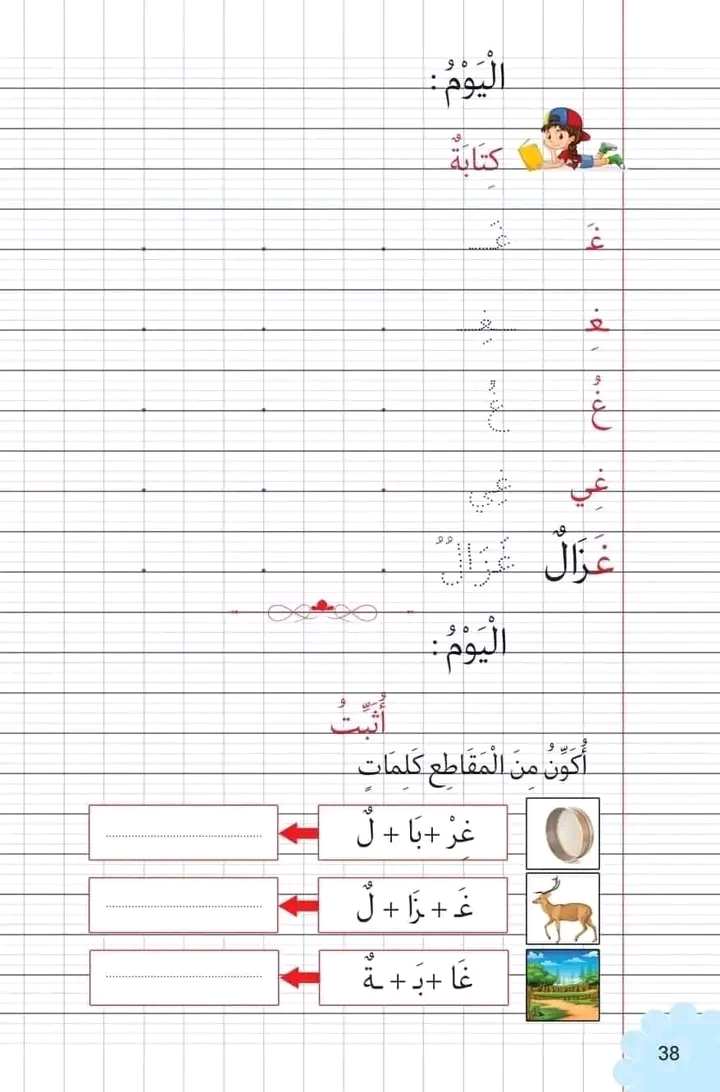 الْيَوْمُ :
كِتَابَةٌ
غَـ غَـ
ـغِـ ـغِـ
غُ غُ
غِي غِي
غَزَالٌ غَزَالٌ
الْيَوْمُ :
أُثَبِّتُ
أُكَوِّنُ مِنَ الْمَقَاطِعِ كَلِمَاتٍ
غِرْ + بَا + لٌ
غَـ + ـزَا + لٌ
غَا + بَـ + ـةٌ
38